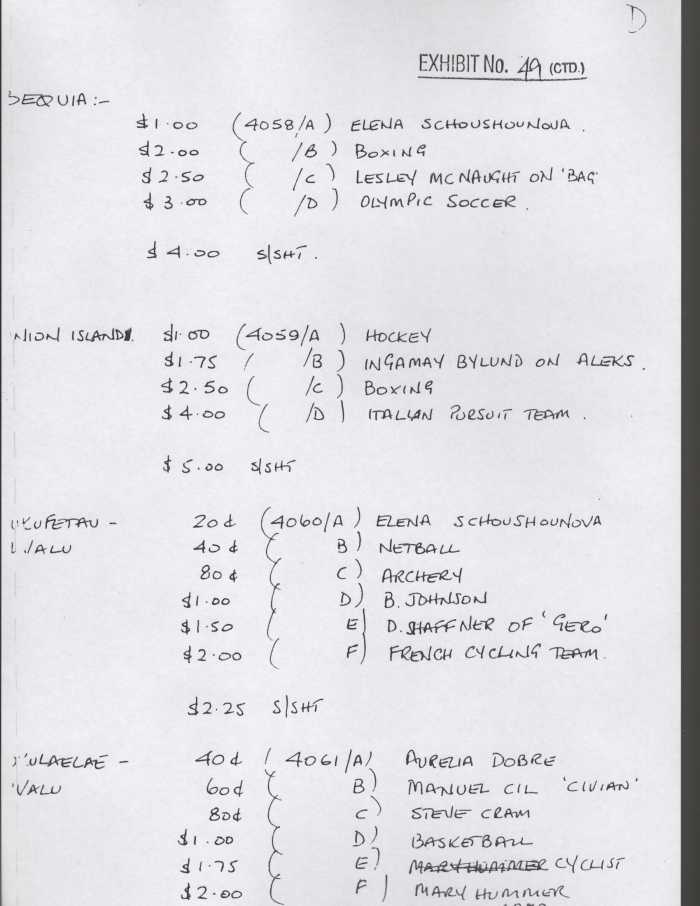 D
EXHIBIT No. 49 (CTD.)
BEQUIA :-
$1.00 (4058/A) ELENA SCHOUSHOUNOVA.
$2.00 ( /B) BOXING
$2.50 ( /C) LESLEY MCNAUGHT ON 'BAG'
$3.00 ( /D) OLYMPIC SOCCER.
$4.00 S/SHT.
NION ISLAND. $1.00 (4059/A) HOCKEY
$1.75 ( /B) INGAMAY BYLUND ON ALEKS.
$2.50 ( /C) BOXING
$4.00 ( /D) ITALIAN PURSUIT TEAM.
$5.00 S/SHT
UKUFETAU - 20¢ (4060/A) ELENA SCHOUSHOUNOVA
UVALU 40¢ ( B) NETBALL
80¢ ( C) ARCHERY
$1.00 ( D) B. JOHNSON
$1.50 ( E) D. SHAFFNER OF 'GERO'
$2.00 ( F) FRENCH CYCLING TEAM.
$2.25 S/SHT
KULAELAE - 40¢ (4061/A) AURELIA DOBRE
VALU 60¢ ( B) MANUEL CIL 'CIVIAN'
80¢ ( C) STEVE CRAM
$1.00 ( D) BASKETBALL
$1.75 ( E) MARY HUMMER CYCLIST
$2.00 ( F) MARY HUMMER